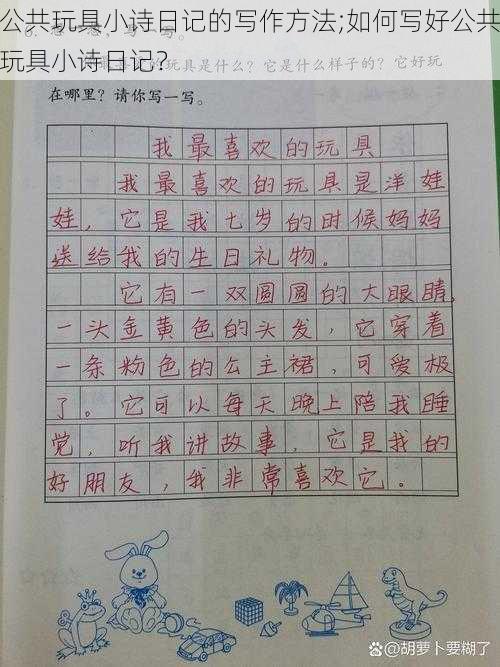 公共玩具小诗日记的写作方法;如何写好公共
玩具小诗日记?
最喜欢的玩具是什么？它是什么样子的？它好玩
在哪里？请你写一写。
我最喜欢的玩具
我最喜欢的玩具是洋娃
娃，它是我七岁的时候妈妈
送给我的生日礼物。
它有一双圆圆的大眼睛，
一头金黄色的头发，它穿着
一条粉色的公主裙，可爱极
了。它可以每天晚上陪我睡
觉，听我讲故事，它是我的
好朋友，我非常喜欢它。
@胡萝卜要糊了